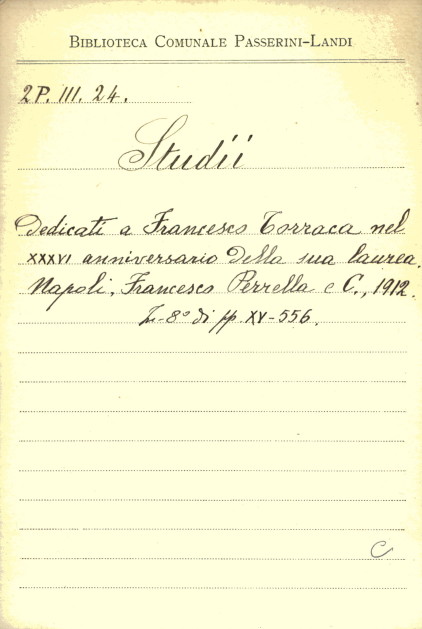 BIBLIOTECA COMUNALE PASSERINI-LANDI
2P. III. 24.
Studii
dedicati a Francesco Torraca nel
XXXVI anniversario della sua laurea.
Napoli, Francesco Perrella e C., 1912.
In-8° di pp. XV-556.
C